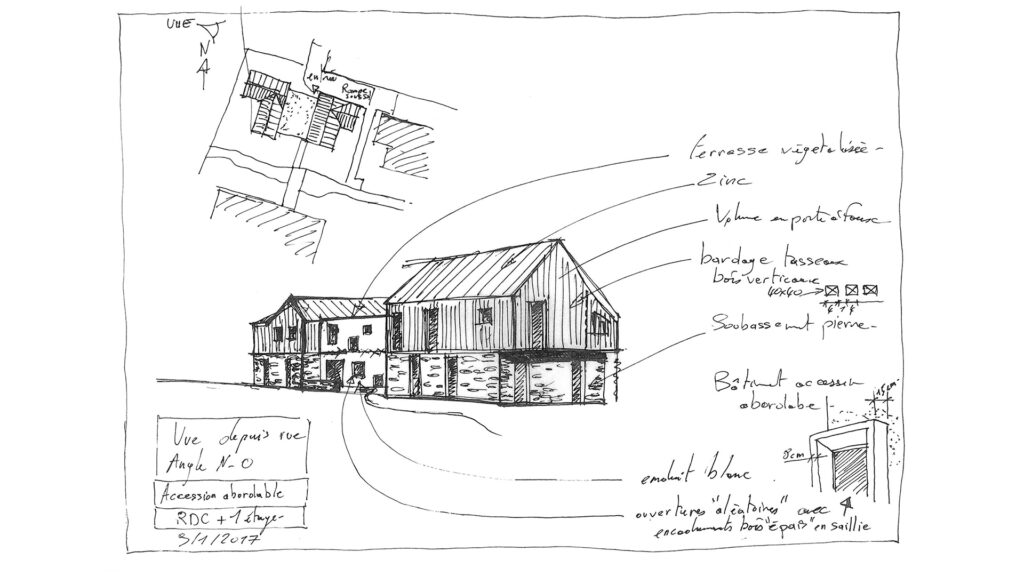 VUE
N
en
rue
Rampe
soussol
terrasse végétalisée
Zinc
Volume en porte à faux
bardage tasseaux
bois verticaux
40x40
4 4 4
Soubassement pierre
Bâtiment accession
abordable
15cm
8cm
enduit blanc
ouvertures "aléatoires" avec
encadrements bois "épais" en saillie
Vue depuis rue
Angle N-O
Accession abordable
RDC + 1 étage
3/1/2017